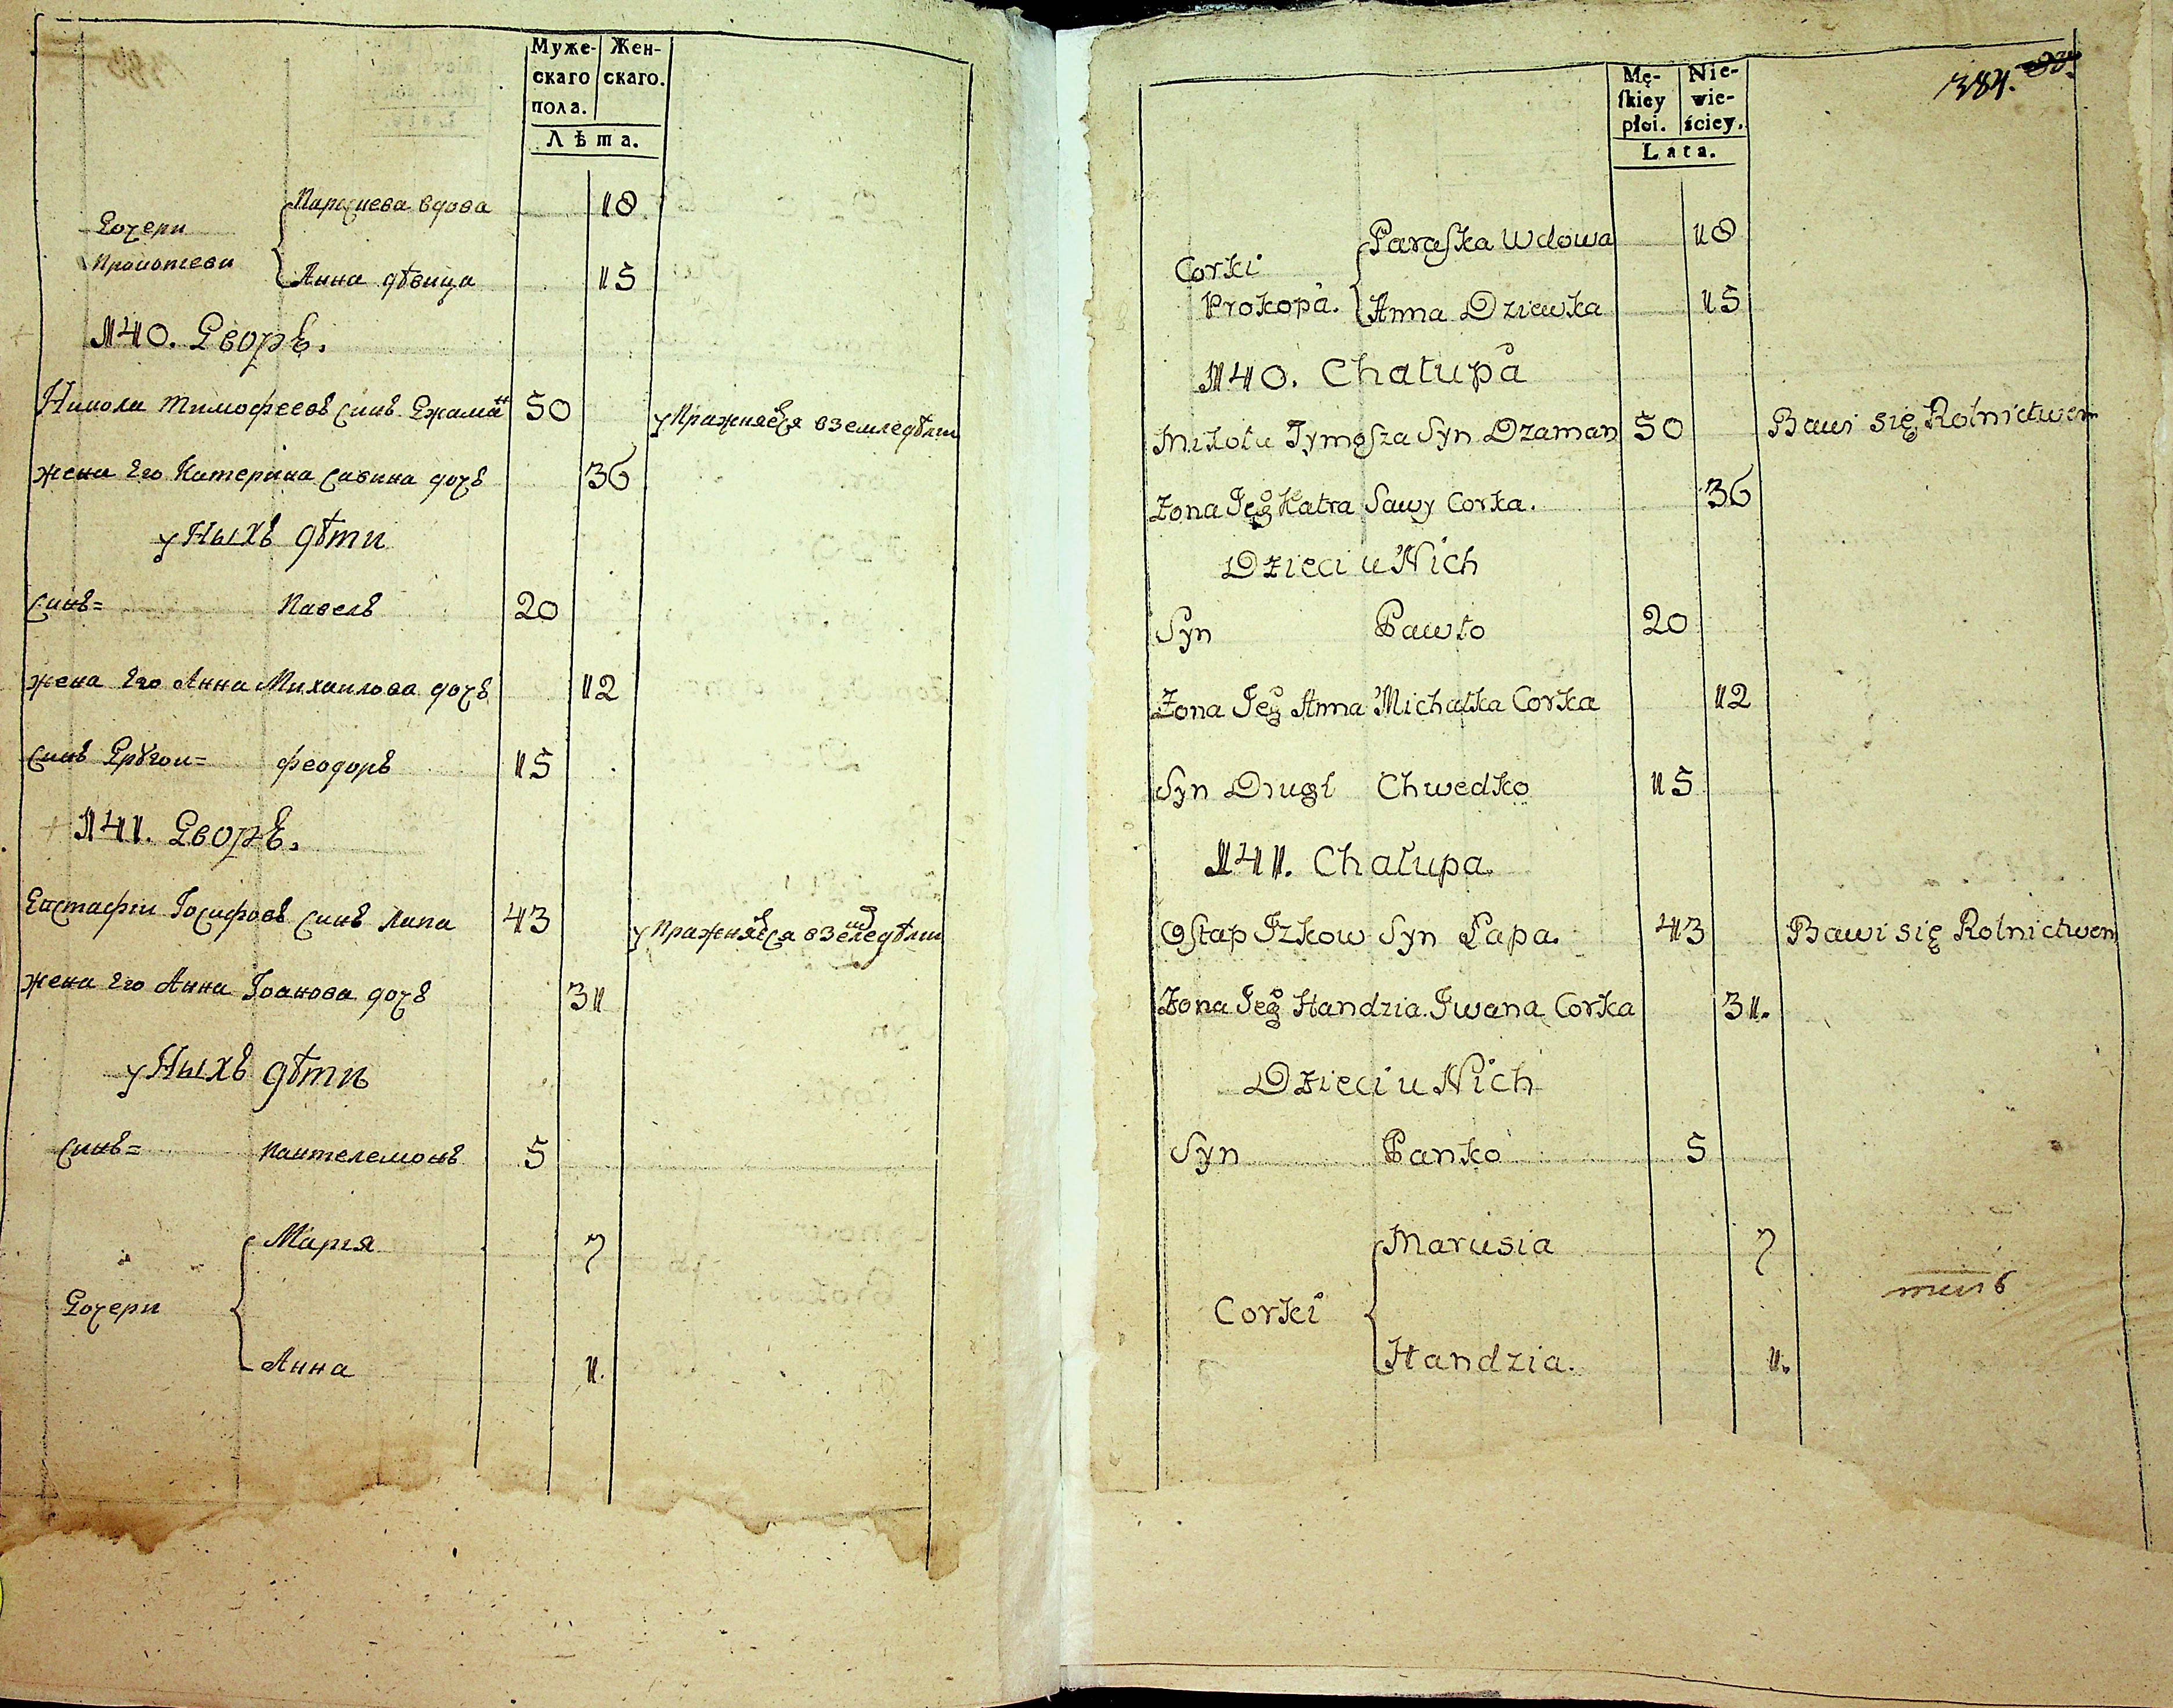 Муже- Жен-
скаго скаго.
пола.
Лѣта.
Парасиева вдова 18
Дочери
Прокопиеви
Анна дѣвица 15
140. Дворъ.
Никола Тимофеевъ синъ Джаманъ 50 упражняется в земледѣлии
жена Его Катерина Савина дочъ 36
у Ныхъ дѣти
синъ= Павелъ 20
жена Его Анна Михаилова дочъ 12
синъ Другои= Феодоръ 15
141. Дворъ.
Евстафии Иосифовъ синъ Лапа 43 упражняется в земледѣлии
жена Его Анна Иоанова дочъ 31
у Ныхъ дѣти
синъ= Пантелемонъ 5
Мария 7
Дочери
Анна 1.
384.
Mę- Nie-
ſkiey wie-
płci. ściey.
Lata.
Paraſka Wdowa 18
Corki
Prokopa.
Anna Dziewka 15
140. Chałupa
Mikoła Tymoſza Syn Dzaman 50 Bawi się Rolnictwem
Zona Jeg° Katra Sawy Corka. 36
Dzieci u Nich
Syn Pawło 20
Zona Jeg° Anna Michałka Corka 12
Syn Drugi Chwedko 15
141. Chałupa.
Oſtap Jzkow Syn Łapa. 43 Bawi się Rolnictwem
Zona Jeg° Handzia Jwana Corka 31.
Dzieci u Nich
Syn Panko 5
Marusia 7
Corki
Handzia. 1.